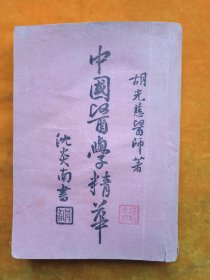 胡光慈醫師著
中國醫學精華
沈炎南書